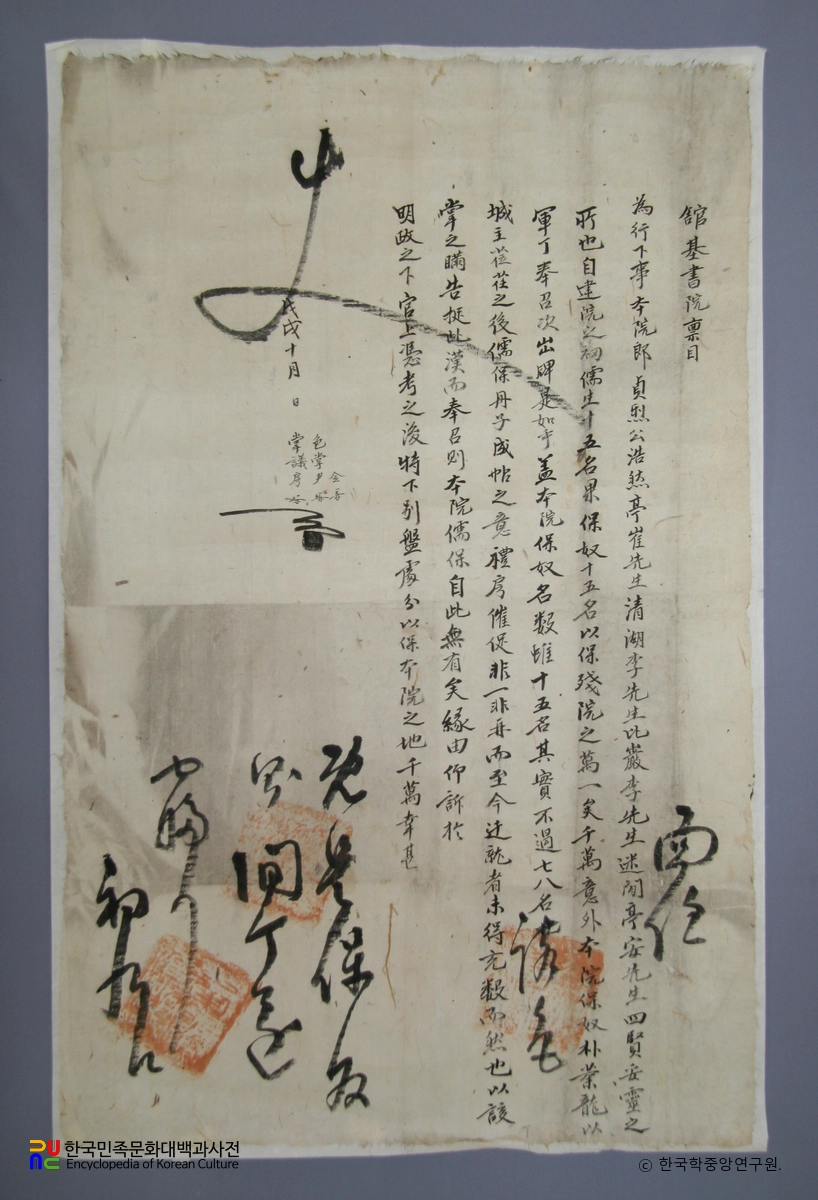 舘基書院稟目
為行下事本院郎貞烈公浩然亭崔先生清湖李先生比巖李先生迷閒亭安先生四賢妥靈之
所也自建院之初儒生十五名果保奴十五名以保殘院之萬一矣千萬意外本院保奴朴業龍以
軍丁奉召次出牌是如乎盖本院保奴名數雖十五名其實不過七八名
城主莅荏之後儒保冊子成帖之意禮房催促非一非再而至今迁就者未得充數而然也以該
掌之瞞告挺此漢而奉召則本院儒保自此無有矣緣由仰訴於
明政之下官上憑考之後特下別盤處分以保本院之地千萬幸甚
戊戌十月 日
色掌尹
掌議房
使
既是保奴
閑丁
初九日
面任
한국민족문화대백과사전
Encyclopedia of Korean Culture
ⓒ 한국학중앙연구원.